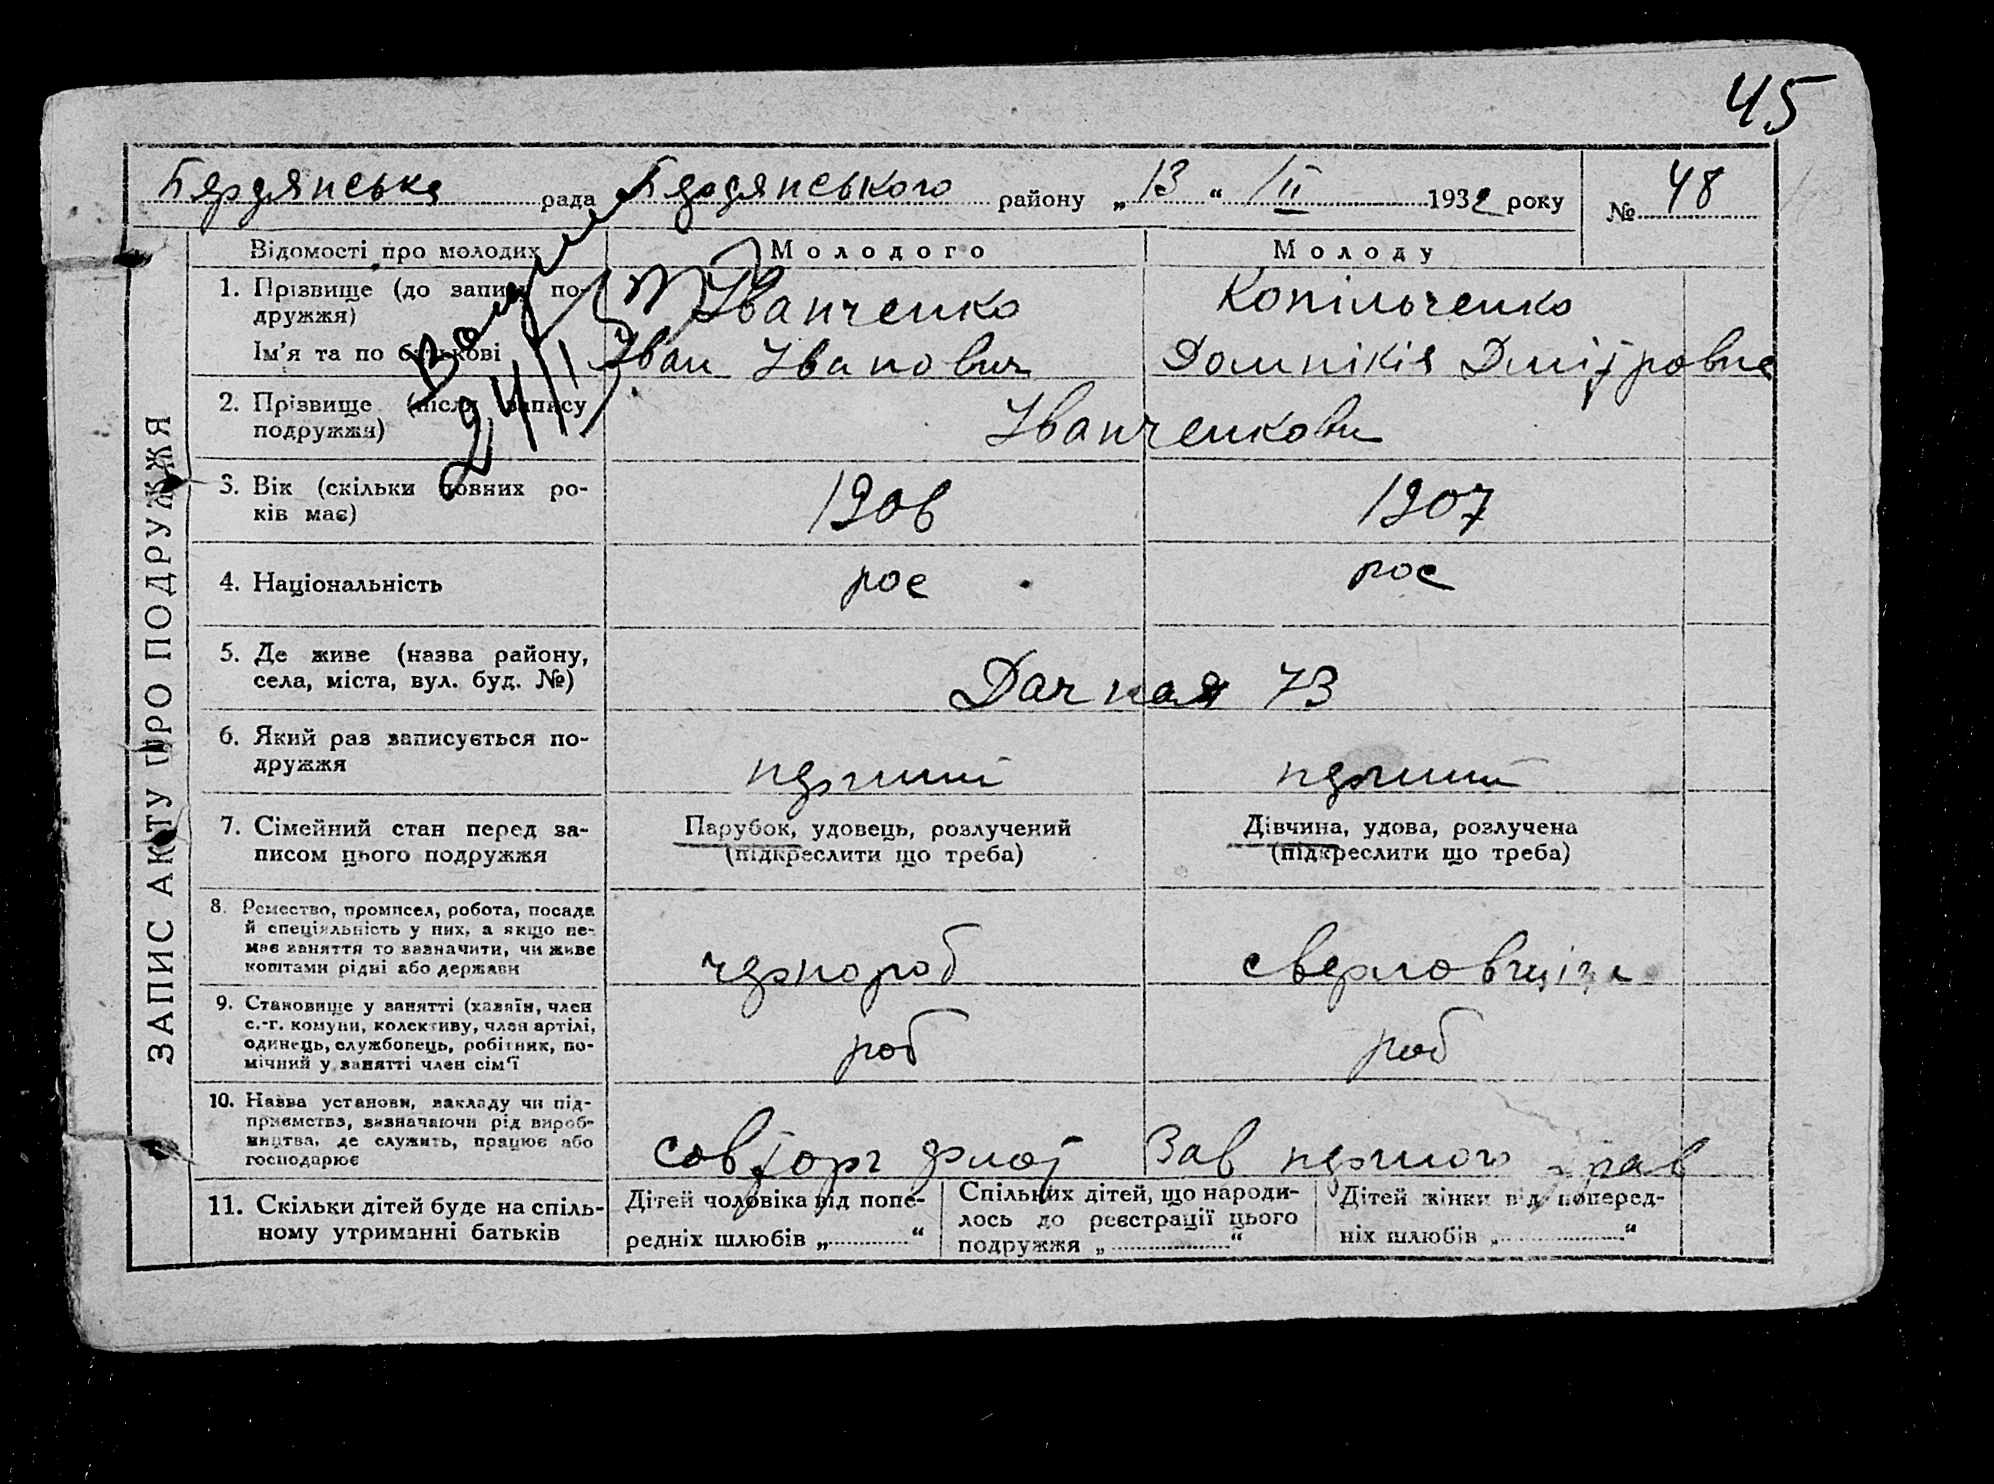 45
Бердянська рада Бердянського району „13“ II 1932 року № 48
Відомості про молодих Молодого Молоду
1. Прізвище (до запису по-
дружжя) Іванченко Копільченко
Ім'я та по батькові Іван Іванович Домнікія Дмітровна
2. Прізвище (після запису
подружжя) Іванченкови
24/II
3. Вік (скільки повних ро-
ків має) 1906 1907
4. Національність рос рос
5. Де живе (назва району,
села, міста, вул. буд. №) Дачная 73
6. Який раз записується по-
дружжя перший перший
7. Сімейний стан перед за-
писом цього подружжя
Парубок, удовець, розлучений
(підкреслити що треба)
Дівчина, удова, розлучена
(підкреслити що треба)
8. Ремество, промисел, робота, посада
й спеціяльність у них, а якщо не-
має заняття то зазначити, чи живе
коштами рідні або держави
чернороб сверловщіца
9. Становище у занятті (хазяїн, член
с.-г. комуни, колективу, член артілі,
одинець, службовець, робітник, по-
мічний у занятті член сім'ї
роб роб
10. Назва установи, закладу чи під-
приємства, зазначаючи рід вироб-
ництва, де служить, працює або
господарює
совторг флот Зав першого трав
11. Скільки дітей буде на спіль-
ному утриманні батьків
Дітей чоловіка від попе-
редніх шлюбів „ “
Спільних дітей, що народи-
лось до реєстрації цього
подружжя „ “
Дітей жінки від поперед-
ніх шлюбів „ “
ЗАПИС АКТУ ПРО ПОДРУЖЖЯ